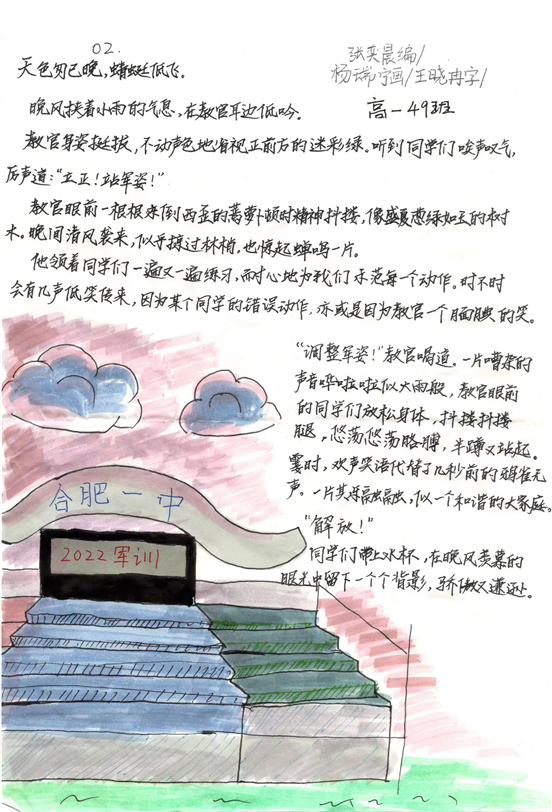 02.
张奕晨编/
杨瑞宁画/王晓冉字/
高一49班
天色匆已晚，蜻蜓低飞。
晚风挟着小雨的气息，在教官耳边低吟。
教官身姿挺拔，不动声色地省视正前方的迷彩绿。听到同学们唉声叹气，
厉声道：“立正！站军姿！”
教官眼前一根根东倒西歪的葛萝卜顿时精神抖擞，像盛夏遭绿如玉的树
木。晚间清风袭来，似乎掠过林梢，也惊起蝉鸣一片。
他领着同学们一遍又一遍练习，耐心地为我们示范每一个动作。时不时
会有几声低笑传来，因为某个同学的错误动作，亦或是因为教官一个腼腆的笑。
“调整军姿！”教官喝道。一片嘈杂的
声音哗啦啦似大雨般，教官眼前
的同学们放松身体，抖搂抖搂
腿，悠荡悠荡胳膊，半蹲又站起。
霎时，欢声笑语代替了几秒前的鸦雀无
声。一片其乐融融，似一个和谐的大家庭。
“解放！”
同学们带上水杯，在晚风羡慕的
眼光中留下一个个背影，骄傲又谦逊。
合肥一中
2022军训